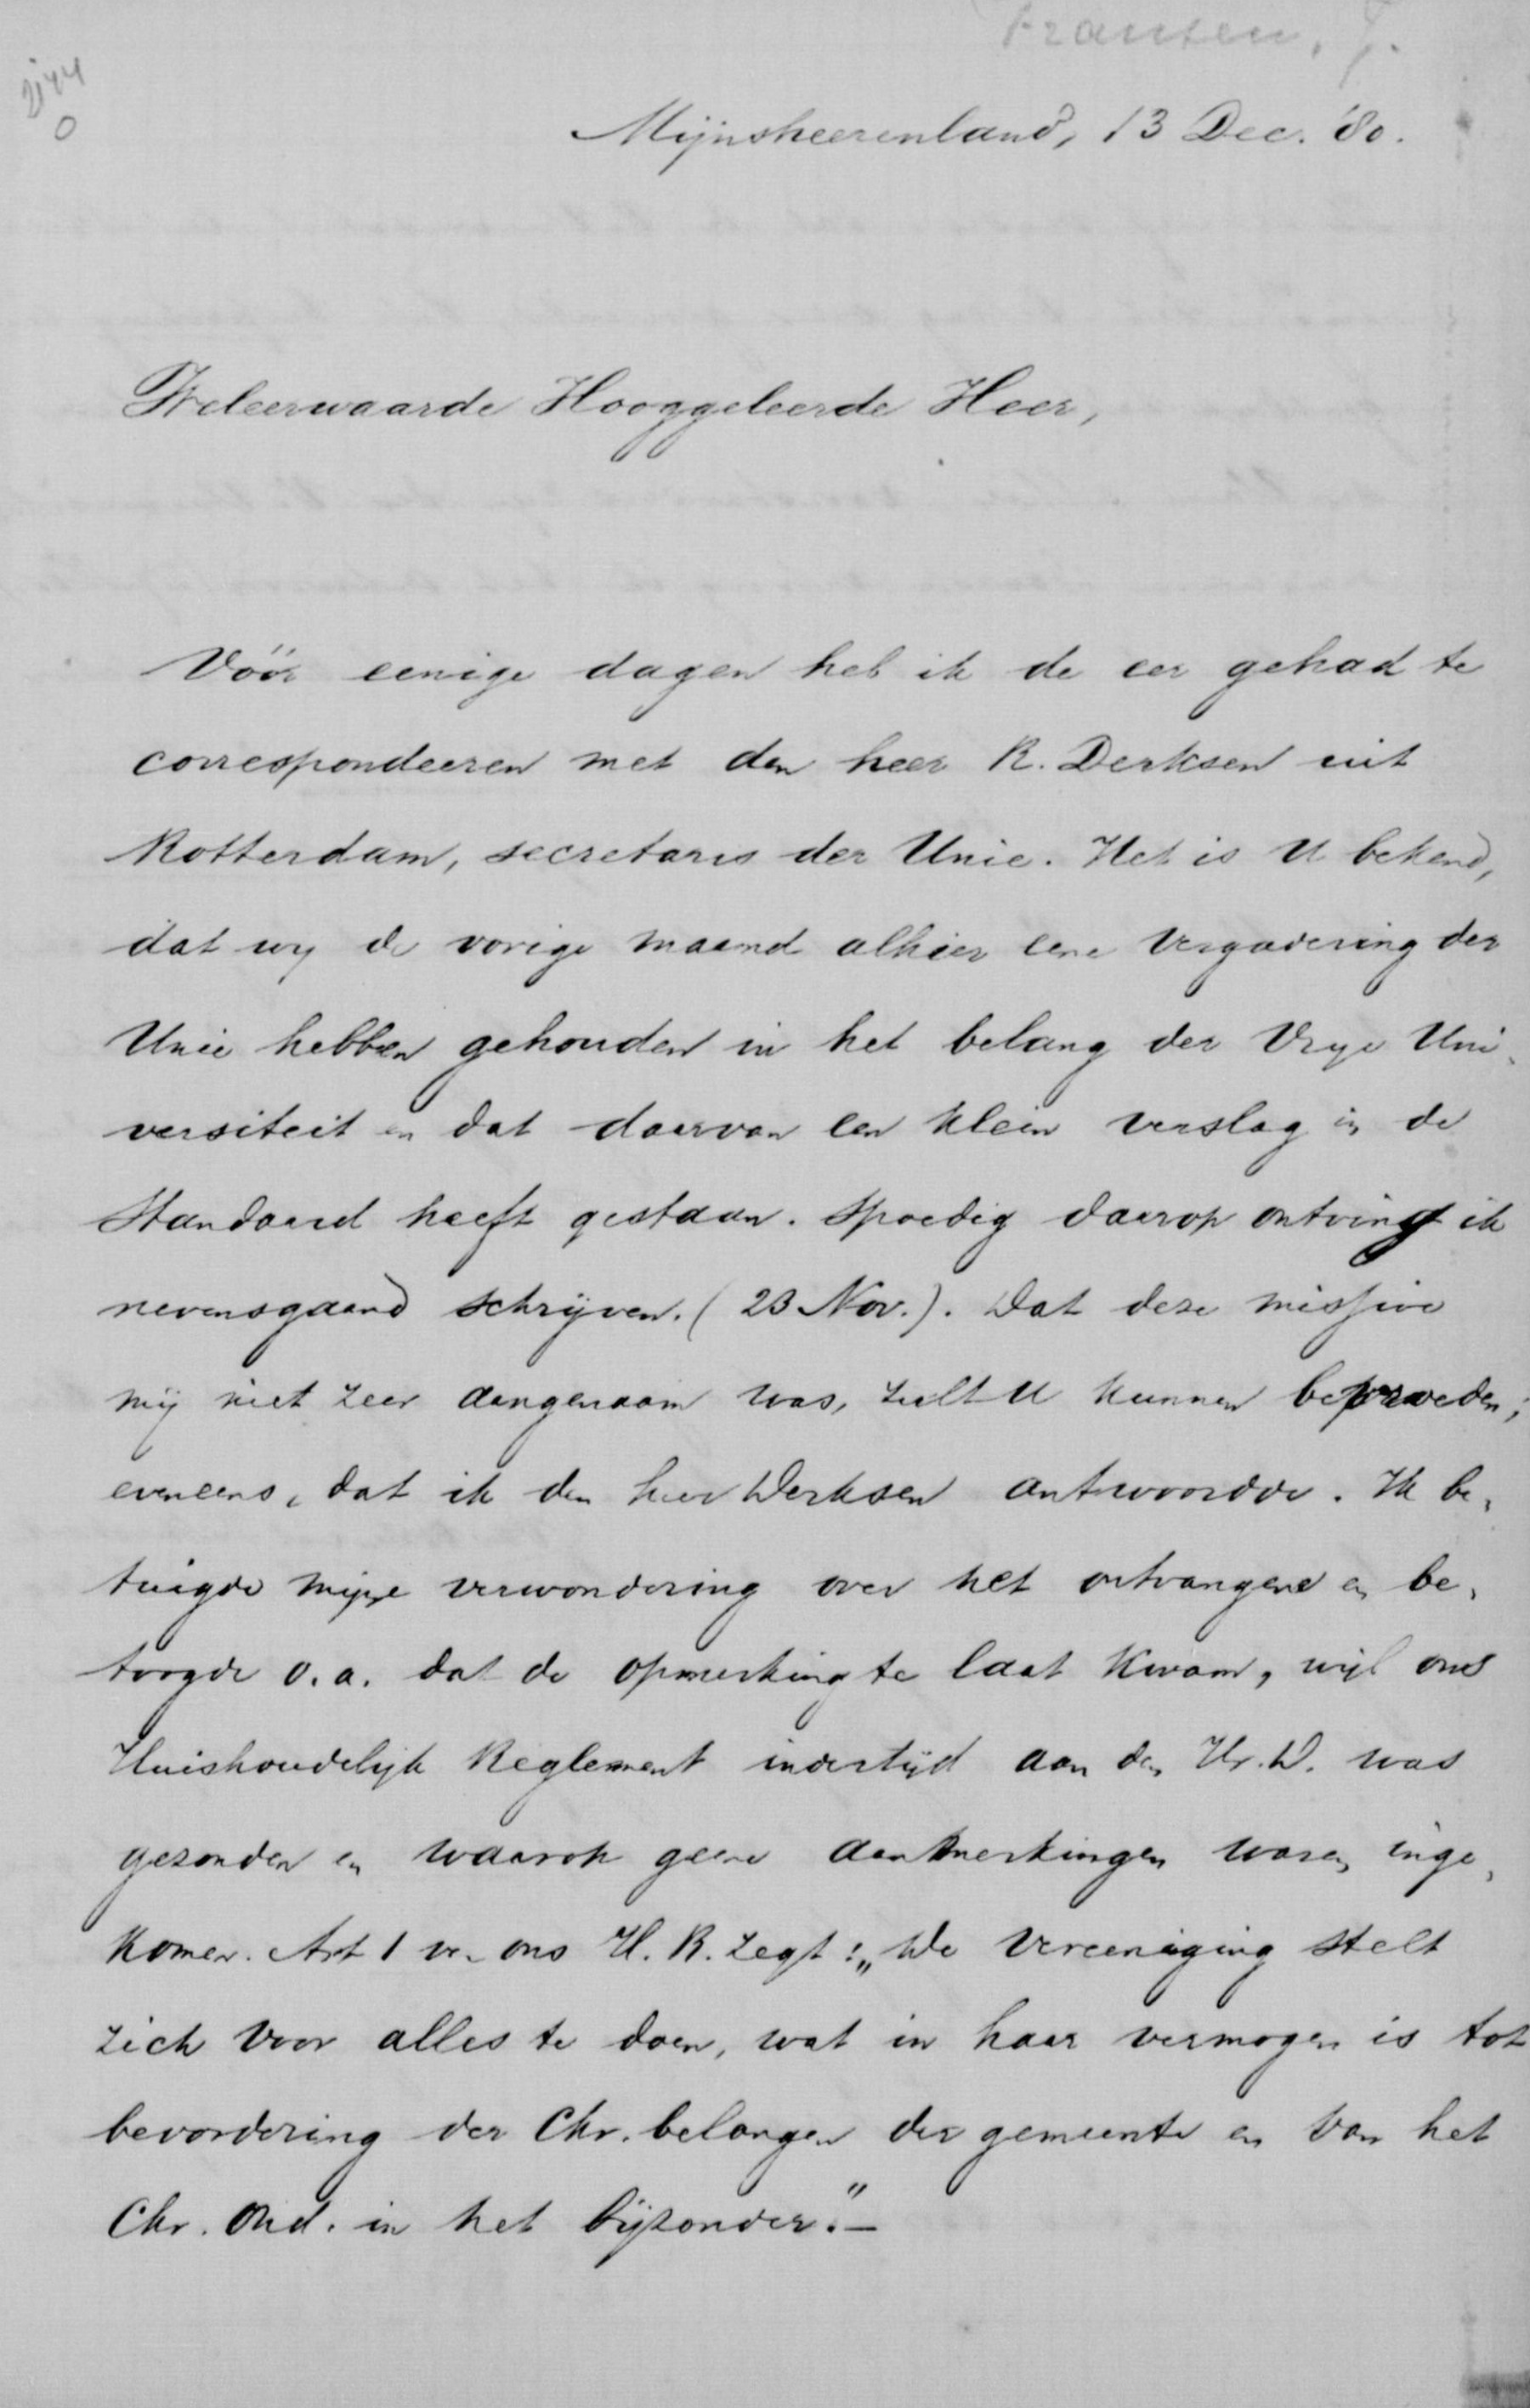 Fransen, J.
Mijnsheerenland, 13 Dec. '80.
WelEerwaarde Hooggeleerde Heer,
Vóór eenige dagen heb ik de eer gehad te
correspondeeren met den heer R. Derksen uit
Rotterdam, secretaris der Unie. Het is U bekend,
dat wy de vorige maand alhier eene Vergadering der
Unie hebben gehouden in het belang der Vrye Uni-
versiteit en dat daarvan een klein verslag in de
Standaard heeft gestaan. Spoedig daarop ontving ik
nevensgaand schrijven. (23 Nov.). Dat deze missive
mij niet zeer aangenaam was, zult U kunnen
eveneens, dat ik den heer Derksen antwoordde. Ik be-
tuigde mijne verwondering over het ontvangene en be-
toogde o.a. dat de opmerking te laat kwam, wijl ons
Huishoudelijk Reglement indertijd aan den Hr. D. was
gezonden en waarop geene aanmerkingen waren inge-
komen. Art 1 van ons H. R. zegt: „De Vereeniging stelt
zich voor alles te doen, wat in haar vermogen is tot
bevordering der Chr. belangen der gemeente en van het
Chr. Ond. in het bijzonder." —